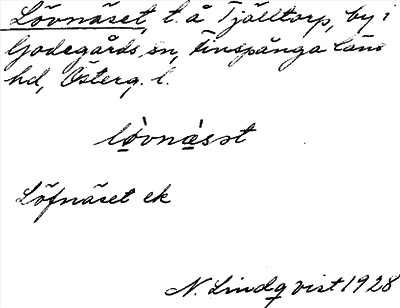 Lövnäset, t. å Tjälltorp, by i
Godegårds sn, Finspånga läns
hd, Österg. l.
lövnäsət
Löfnäset ek
N. Lindqvist 1928